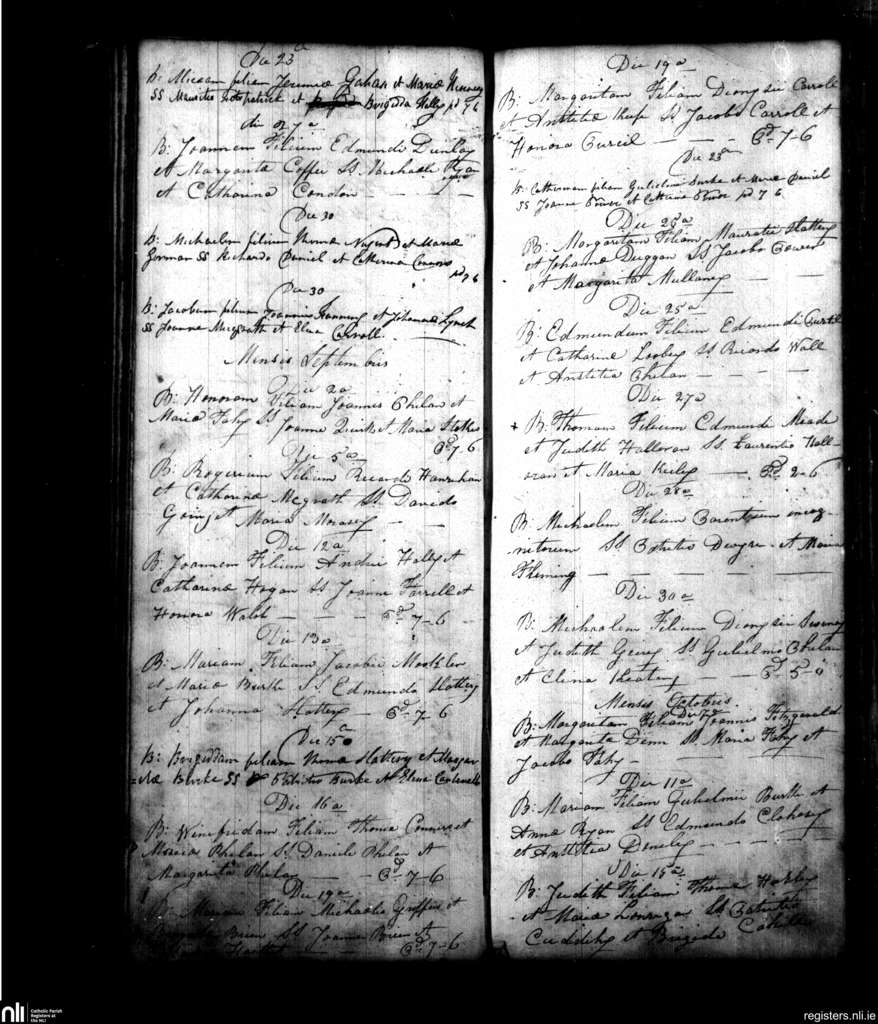 Die 23a
B: Miriam filiam Jeremiæ Gahan et Mariæ
SS Mauritio Fitzpatrick et Brigida Kelly pd 7 6
die 27a
B: Joannem Filium Edmundi Dunlay
et Margarita Coffee SS. Michaele Ryan
et Catharina Condon
Die 30
B: Michaelem filium Thomæ Nugent et Mariæ
Gorman SS Richardo Daniel et Catherina Connors
pd 7 6
Die 30
B: Jacobum filium Joannis et Johanna Lynch
SS Joanne Magrath et Elena Carroll.
Mensis Septembris
Die 2a
B: Honoram Filiam Joannis Phelan et
Maria Fahy SS Joanne Quirk et Maria Stokes
Pd 7-6
Die 5a
B: Rogerium Filium Ricardi Hanrahan
et Catharina Mcgrath SS. Daniele
Going et Maria Morasey
Die 12a
B: Joannem Filium Andrie Hally et
Catharina Hogan SS Joanne Farrell et
Honora Walsh Pd 7-6
Die 13a
B: Mariam Filiam Jacobi Mockler
et Maria Burke SS. Edmundo Slattery
et Johanna Slattery Pd 7-6
Die 15a
B: Brigiddam filiam Thomæ Slattery et Margar
=itæ Burke SS Patritio Burke et Elena Cantwell
Die 16a
B: Winefridam Filiam Thomæ Connors et
Maria Phelan SS. Daniele Phelan et
Margarita Phelan Pd 7-6
Die 19a
B: Mariam Filiam Michaelis Griffin et
Brien SS Joanne Brien et
Pd 7-6
Die 19a
B: Margaritam Filiam Dionysii Carroll
et Anstitia SS Jacobo Carroll et
Honora Purcil Pd 7-6
Die 23a
B: Catherinam filiam Gulielmi Burke et Mariæ Daniel
SS Joanne Power et pd 7 6
Die 23a
B: Margaritam Filiam Mauratii Slattery
et Johanna Duggan SS Jacobo
et Margarita Mullany
Die 25a
B: Edmundum Filium Edmundi
et Catharina Looby SS. Ricardo Wall
et Anstitia Phelan
Die 27a
+ B: Thomam Filium Edmundi Meade
et Judith Halloran SS. Laurentio Hall-
oran et Maria Kiely Pd 2-6
Die 28a
B: Michaelem Filium Parentium incog-
nitorum SS Patritio Dwyre et Maria
Fleming
Die 30a
B: Michaelem Filium Dionysii Sweeney
et Judith SS Gulielmo Phelan
et Elena Keating Pd 5-0
Mensis Octobris.
Die 7a
B: Margaritam Filiam Joannis Fitzgerald
et Margarita Dunn SS. Maria Fahy et
Jacobo Fahy
Die 11a
B: Mariam Filiam Gulielmii Burke et
Anna Ryan SS Edmundo Clohosy
et Anstitia
Die 15a
B: Judith Filiam Thomæ Harley
et Maria Lonergan SS Patritio
Cudihy et Brigida
nli
Catholic Parish
Registers at
the NLI
registers.nli.ie